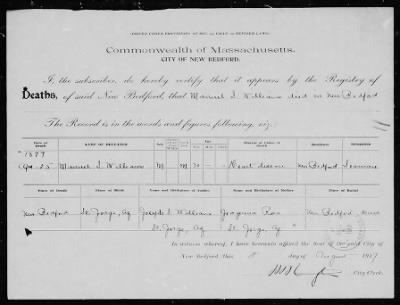 (ISSUED UNDER PROVISIONS OF SEC. 14, CHAP. 29 REVISED LAWS.)
Commonwealth of Massachusetts.
CITY OF NEW BEDFORD.
I, the subscriber, do hereby certify that it appears by the Registry of
Deaths, of said New Bedford, that Manuel S. Williams died in New Bedford
The Record is in the words and figures following, viz:
Date of Death NAME OF DECEASED Disease or Cause of Death Residence Occupation
1899
Apr 25 Manuel S. Williams M M 70 Heart disease New Bedford Seaman
Place of Death Place of Birth Name and Birthplace of Father Name and Birthplace of Mother Place of Burial
New Bedford St. Jorge, Az Joseph S. Williams Rosa New Bedford, Mass
St. Jorge, Az St. Jorge, Az
In witness whereof, I have hereunto affixed the Seal of the said City of
New Bedford, this 8 day of August 1917
City Clerk.